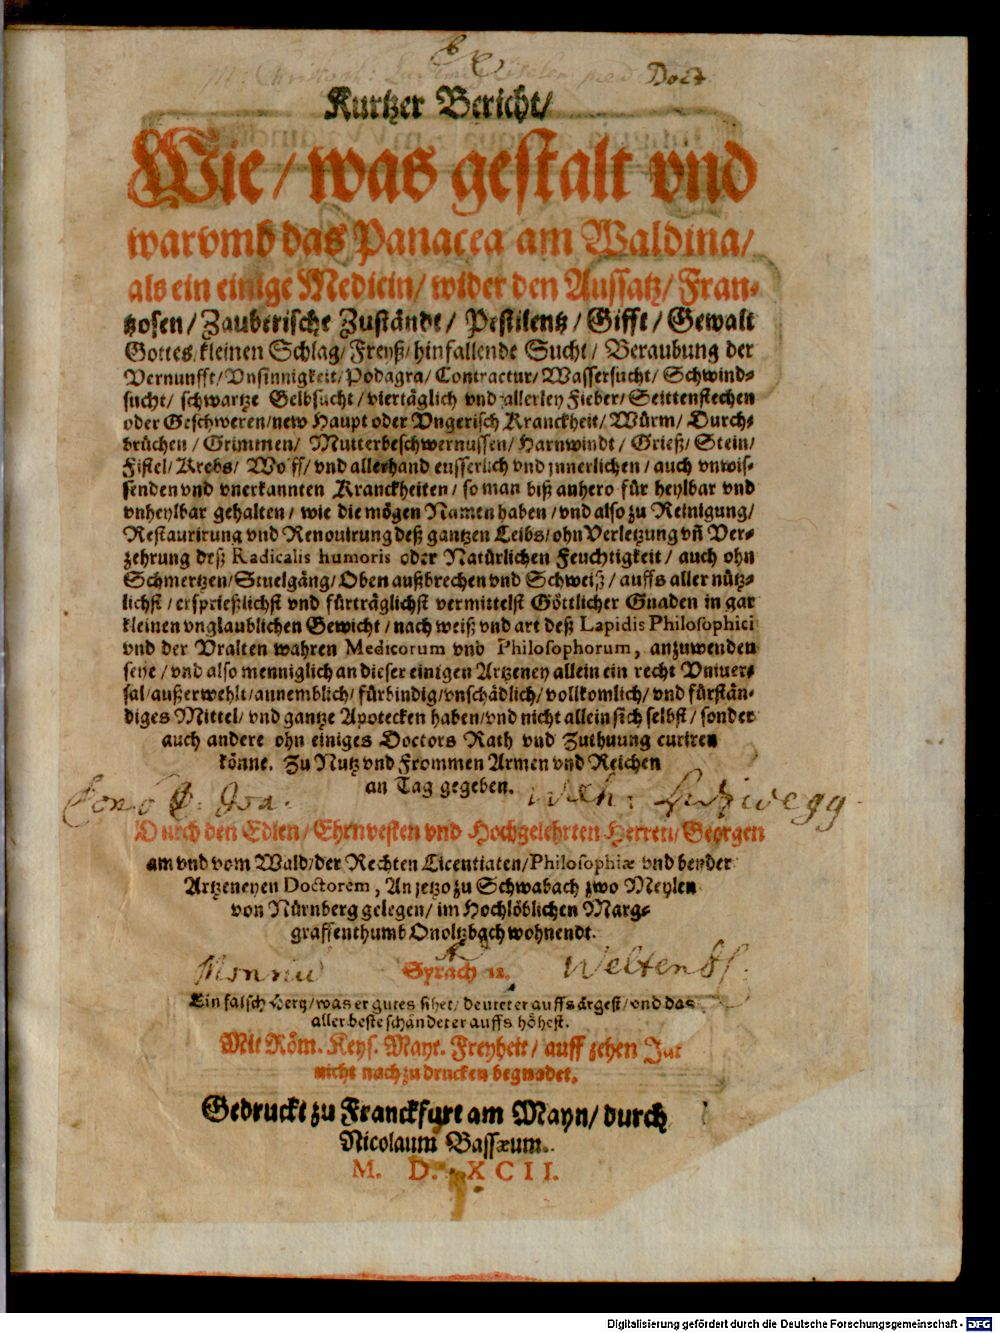 Doct
Kurtzer Bericht/
Wie/ was gestalt vnd
warvmb das Panacea am Waldina/
als ein einige Medicin/ wider den Aussatz/ Fran-
tzosen/ Zauberische Zustände/ Pestilentz/ Gifft/ Gewalt
Gottes/ kleinen Schlag/ Freyß/ hinfallende Sucht/ Beraubung der
Vernunfft/ Vnsinnigkeit/ Podagra/ Contractur/ Wassersucht/ Schwind-
sucht/ schwartze Gelbsucht/ viertäglich vnd allerley Fieber/ Seittenstechen
oder Geschweren/ new Haupt oder Vngerisch Kranckheit/ Würm/ Durch-
brüchen/ Grimmen/ Mutterbeschwernussen/ Harnwindt/ Grieß/ Stein/
Fistel/ Krebs/ Wolff/ vnd allerhand eusserlich vnd jnnerlichen/ auch vnwis-
senden vnd vnerkannten Kranckheiten/ so man biß anhero für heylbar vnd
vnheylbar gehalten/ wie die mögen Namen haben/ vnd also zu Reinigung/
Restaurirung vnd Renouirung deß gantzen Leibs/ ohn Verletzung vñ Ver-
zehrung deß Radicalis humoris oder Natürlichen Feuchtigkeit/ auch ohn
Schmertzen/ Stuelgäng/ Oben außbrechen vnd Schweiß/ auffs aller nütz-
lichst/ ersprießlichst vnd fürträglichst vermittelst Göttlicher Gnaden in gar
kleinen vnglaublichen Gewicht/ nach weiß vnd art deß Lapidis Philosophici
vnd der Vralten wahren Medicorum vnd Philosophorum, anzuwenden
seye/ vnd also menniglich an dieser einigen Artzeney allein ein recht Vniuer-
sal/ außerwehlt/ annemblich/ fürbindig/ vnschädlich/ vollkomlich/ vnd fürstän-
diges Mittel/ vnd gantze Apotecken haben/ vnd nicht allein sich selbst/ sonder
auch andere ohn einiges Doctors Rath vnd Zuthuung curiren
könne. Zu Nutz vnd Frommen Armen vnd Reichen
an Tag gegeben.
Durch den Edlen/ Ehrnvesten vnd Hochgelehrten Herren/ Georgen
am vnd vom Wald/ der Rechten Licentiaten/ Philosophiæ vnd beyder
Artzeneyen Doctorem, An jetzo zu Schwabach zwo Meylen
von Nürnberg gelegen/ im Hochlöblichen Marg-
graffenthumb Onoltzbach wohnendt.
Syrach 12.
Ein falsch Hertz/ was er gutes sihet/ deutet er auffs ärgest/ vnd das
aller beste schändet er auffs höhest.
Mit Röm. Keys. Mayt. Freyheit/ auff zehen Jar
nicht nachzudrucken begnadet.
Gedruckt zu Franckfurt am Mayn/ durch
Nicolaum Bassæum.
M. D. XCII.
Digitalisierung gefördert durch die Deutsche Forschungsgemeinschaft - DFG